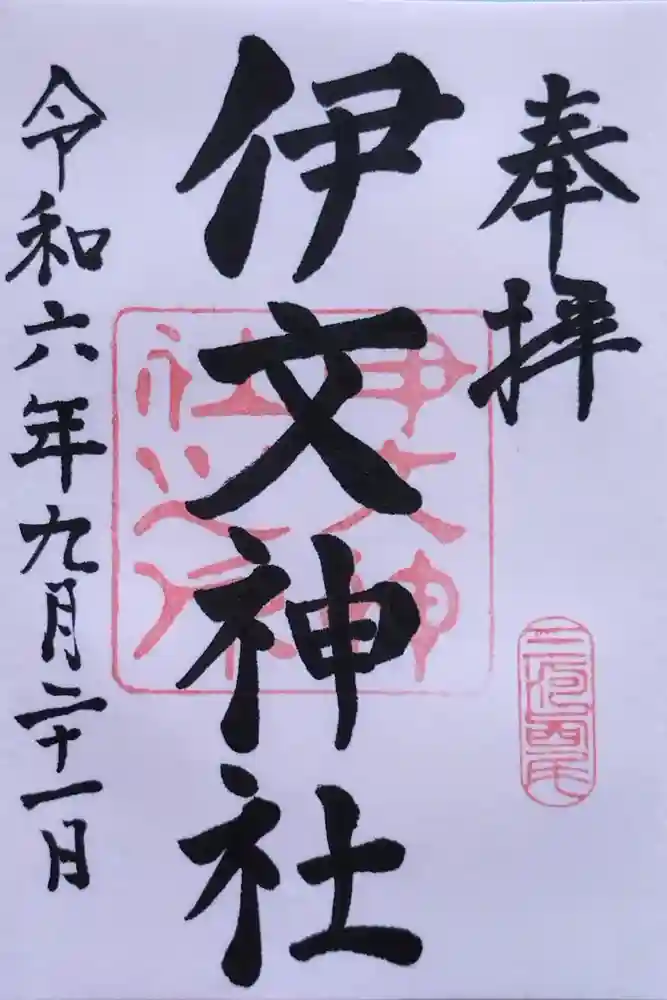 奉拝
三河西尾
伊文神社
伊文神社之印
令和六年九月二十一日